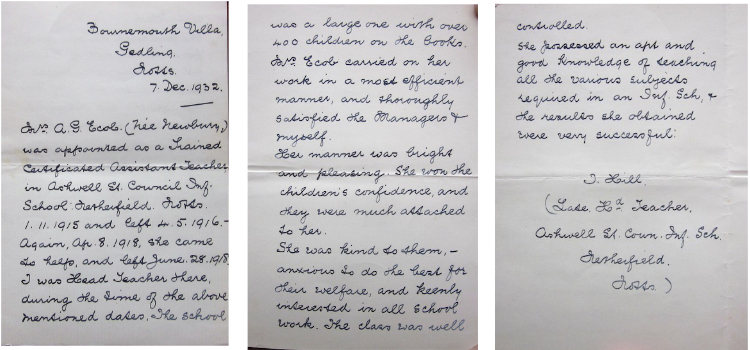 Bournemouth Villa,
Gedling,
Notts.
7. Dec. 1932.
Mrs A. G. Ecob. (Née Newbury,)
was appointed as a Trained
Certificated Assistant Teacher
in Ashwell St. Council Inf.
School. Netherfield. Notts.
1. 11. 1915 and left 4. 5. 1916.-
Again, Ap. 8. 1918, she came
to help, and left June. 28. 1918.
I was Head Teacher there,
during the time of the above
mentioned dates. The school
was a large one with over
400 children on the books.
Mrs Ecob carried on her
work in a most efficient
manner, and thoroughly
satisfied the Managers &
myself.
Her manner was bright
and pleasing. She won the
children's confidence, and
they were much attached
to her.
She was kind to them, -
anxious to do the best for
their welfare, and keenly
interested in all school
work. The class was well
controlled.
She possessed an apt and
good knowledge of teaching
all the various subjects
required in an Inf. Sch, &
the results she obtained
were very successful.
Hill.
(Late Hd Teacher,
Ashwell St. Coun. Inf. Sch.
Netherfield,
Notts.)